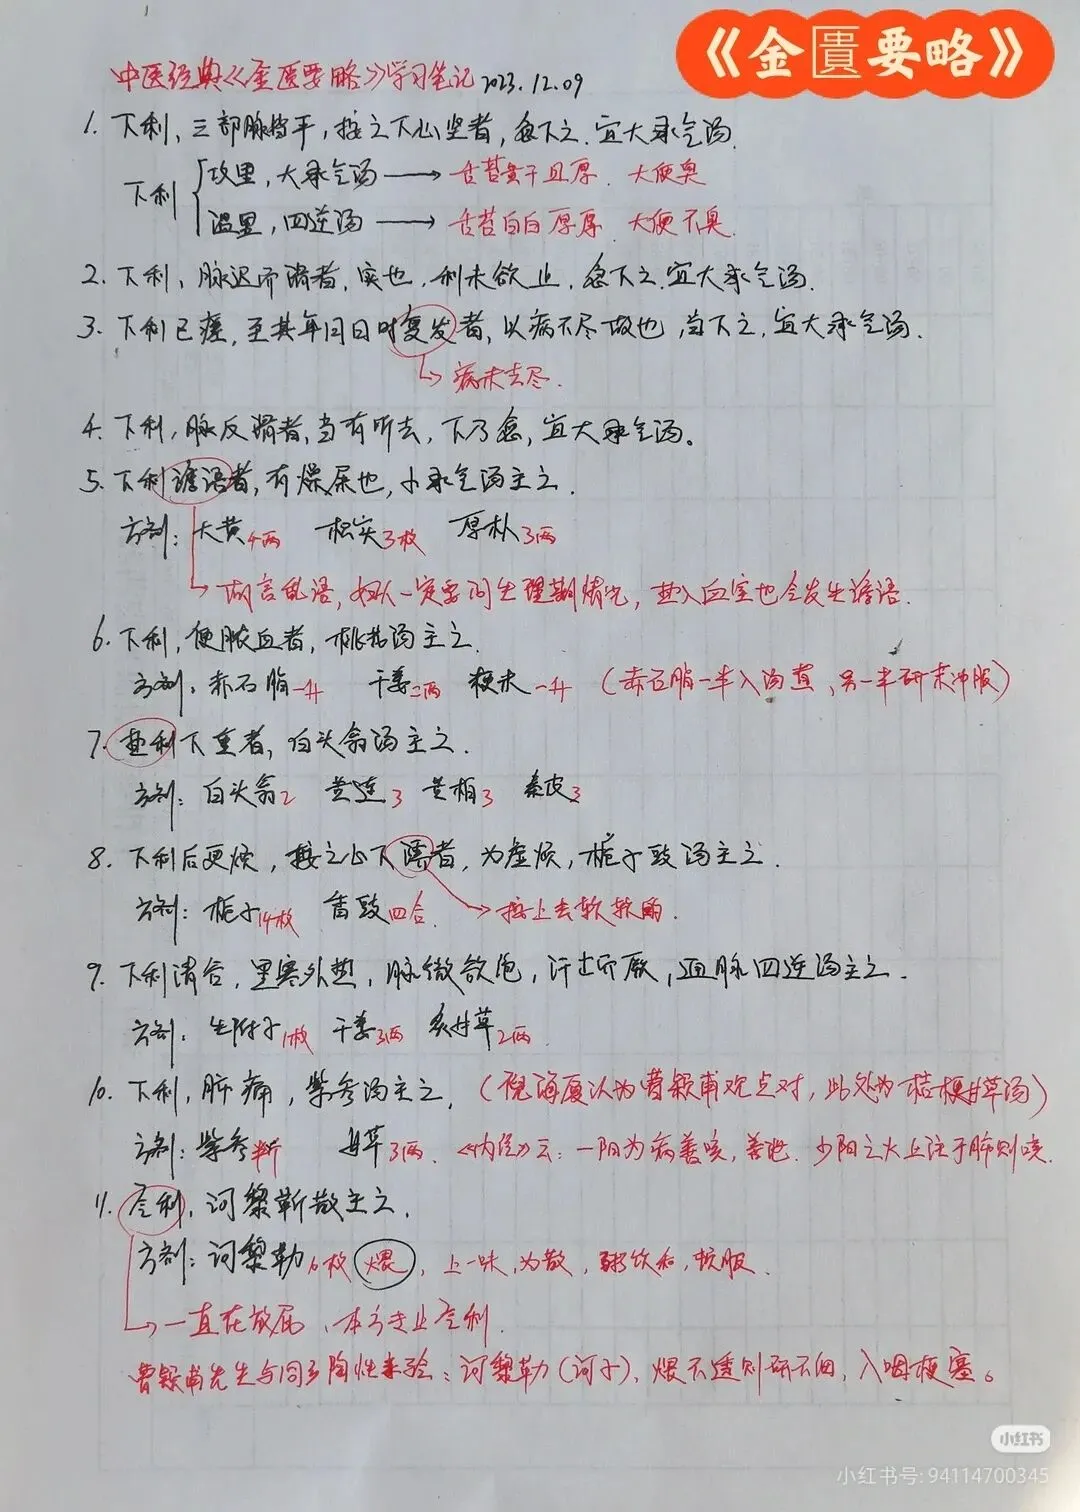 《金匮要略》
中医经典《金匮要略》学习笔记 2023.12.09
1. 下利，三部脉皆平，按之下心坚者，急下之，宜大承气汤.
下利
攻里，大承气汤 → 舌苔黄干且厚. 大便臭
温里，四逆汤 → 舌苔白白厚厚. 大便不臭.
2. 下利，脉迟而滑者，实也，利未欲止，急下之，宜大承气汤.
3. 下利已瘥，至其年月日时复发者，以病不尽故也，当下之，宜大承气汤.
病未去尽.
4. 下利，脉反滑者，当有所去，下乃愈，宜大承气汤。
5. 下利谵语者，有燥屎也，小承气汤主之.
方剂：大黄4两 枳实3枚 厚朴3两
胡言乱语，妇人一定要问生理期情况，热入血室也会发生谵语.
6. 下利，便脓血者，桃花汤主之.
方剂：赤石脂一升 干姜二两 粳米一升 （赤石脂一半入汤煮，另一半研末冲服）
7. 热利下重者，白头翁汤主之.
方剂：白头翁2 黄连3 黄柏3 秦皮3
8. 下利后更烦，按之心下濡者，为虚烦，栀子豉汤主之.
方剂：栀子14枚 香豉四合.
按上去软软的.
9. 下利清谷，里寒外热，脉微欲绝，汗出而厥，通脉四逆汤主之.
方剂：生附子1枚 干姜3两 炙甘草2两
10. 下利，肺痛，紫参汤主之. （倪海厦认为曹颖甫观点对，此处为桔梗甘草汤）
方剂：紫参半斤 甘草3两. 《内经》云：一阳为病善咳，善泄. 少阳之火上注于肺则咳.
11. 气利，诃黎勒散主之.
方剂：诃黎勒10枚 煨，上一味，为散，粥饮和，顿服.
一直在放屁，本方主止气利.
曹颖甫先生与同乡陶性来验：诃黎勒（诃子），煨不透则研不细，入咽梗塞。
小红书
小红书号: 94114700345